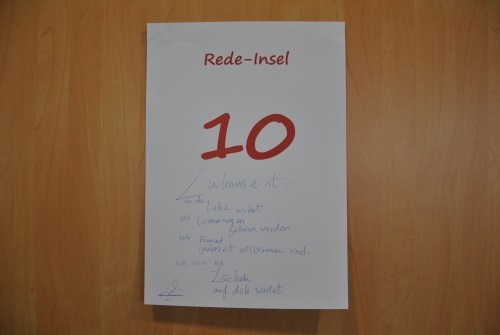 Rede-Insel
10
Zuhause ist...
wo die Liebe wohnt
wo Erinnerungen
geboren werden
wo Freund
jederzeit willkommen sind.
wo immer ein
Lächeln
auf dich wartet